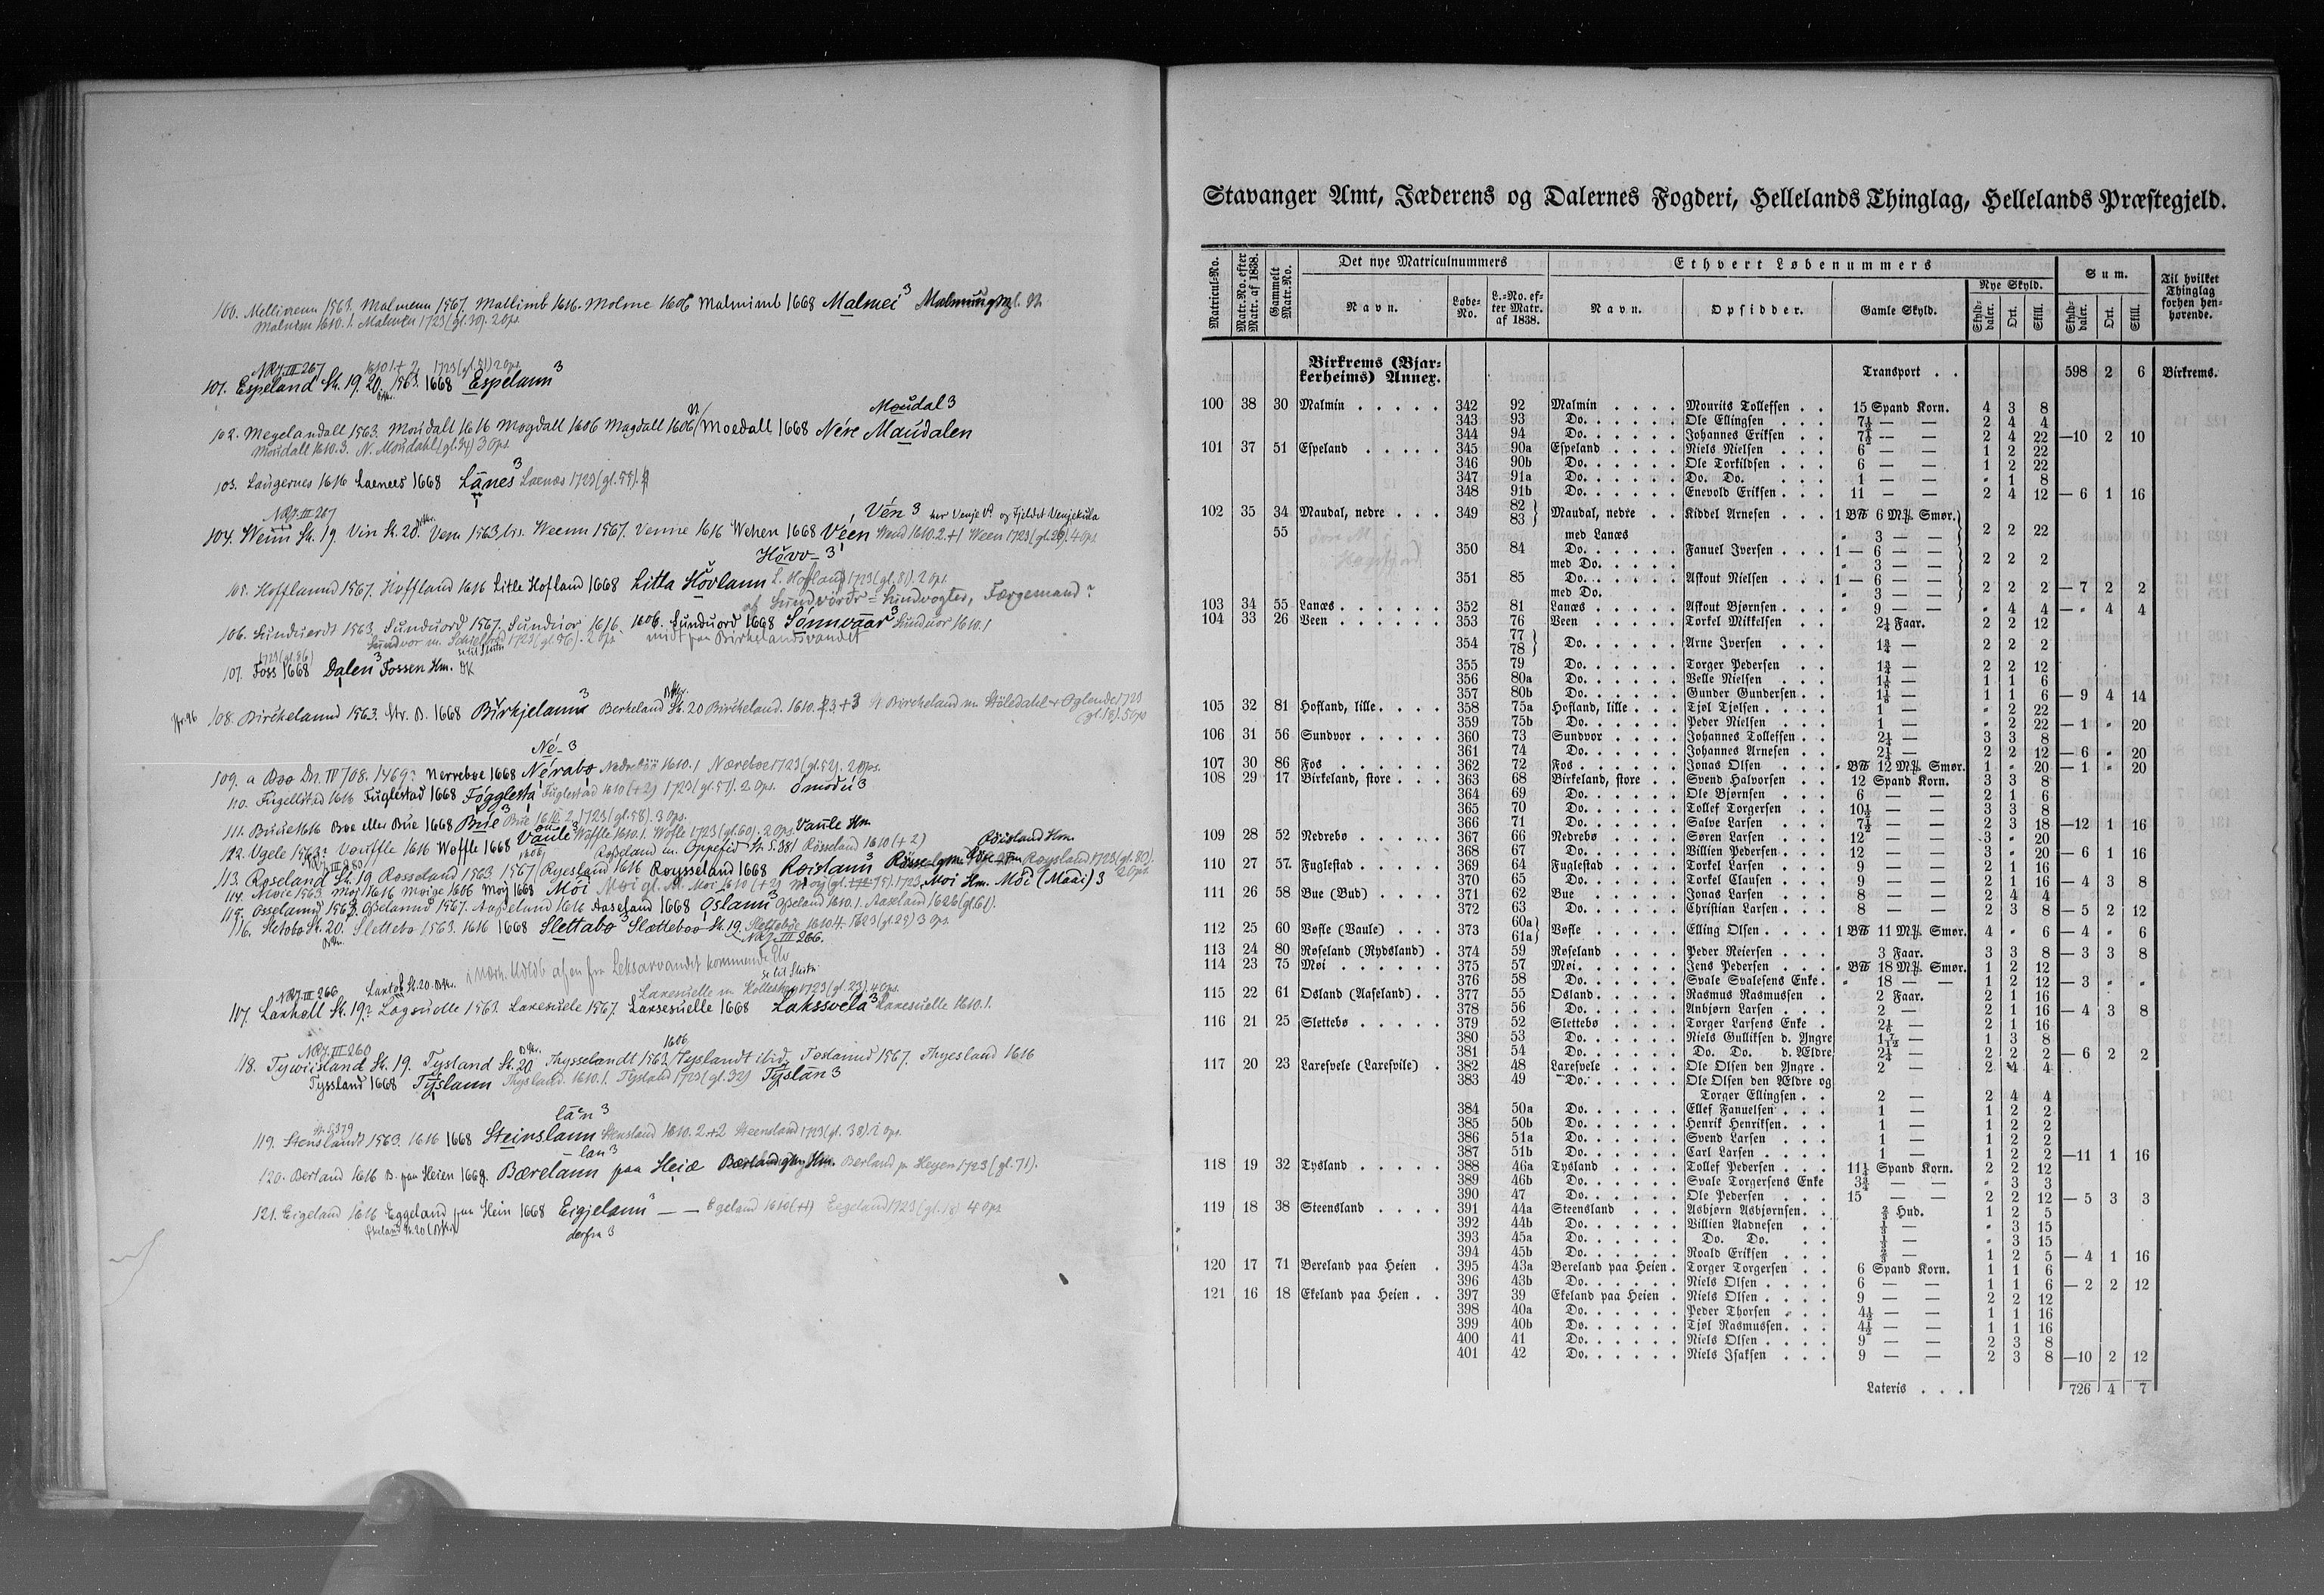 100. Mellimenn 1563. Malmenn 1567. Mallimb 1616. Molme 1606 Malmimb 1668 Malmei 3
Malmen 1610.1. Malmen 1723 (gl. 30). 2 Ops.
NRJ. III 267 1610.1+2 1723 (gl. 51) 2 Ops.
101. Espeland St. 19. 20. 1563. 1668 Espelann 3
Moudal 3
102. Megelandall 1563. Moudall 1616 Mogdall 1606 Magdall 1606 / Moedall 1668 Nére Maudalen
Moudall 1610.3. N. Moudahl (gl. 34) 3 Ops.
103. Laugernes 1616 Laenees 1668 Lånes 3 Laenæs 1723 (gl. 55).
NRJ. III 267 Vén 3 og Fjeldet Venjekula
104. Weim St. 19 Vin St. 20. Vem 1563, Weenn 1567. Venne 1616 Wehen 1668 Véen Wend 1610.2.+1 Ween 1723 (gl. 26). 4 Ops.
Hovv- 3
105. Hofflannd 1567. Hoffland 1616 Litle Hofland 1668 Litta Hovlann L. Hofland 1723 (gl. 81). 2 Ops.
af Sundvörðr = Sundvogter, Færgemand?
106. Sunduerdt 1563, Sunduord 1567. Sunduor 1616. 1606. Sunduord 1668 Sonnvaar 3 Sunduor 1610.1
midt paa Birkelandsvandet
1723 (gl. 86)
107. Foss 1668 Dalen 3 Fossen Hm.
108. Birckelannd 1563. Str. B. 1668 Birkjelann 3 Berkeland St. 20 Birckeland. 1610. 3.+3 St Birckeland m Stöledahl + Oglende 1723
(gl. 18). 5 Ops
Né- 3
109. a Boo Dn. IV 708. 1469? Nerreboe 1668 Nérabø Nedrebö 1610.1 Næreboe 1723 (gl. 52). 2 Ops.
110. Fugellstad 1616 Fuglestad 1668 Fogglesta Fuglestad 1610 (+2) 1723 (gl. 57). 2 Ops.
111. Buue 1616 Boe eller Bue 1668 Bue 3 Bue 1610 2 1723 (gl. 58). 3 Ops.
112. Vgele 1563? Vouffle 1616 Woffle 1668 Vaule 3 Woffle 1610.1. Wofle 1723 (gl. 60). 2 Ops. Vaule Hm
NRJ. III 280 Röisland Hm.
113. Roseland St. 19 Rosseland 1563 1567 / Ryesland 1616 Roysseland 1668 Roislann 3 Roysland 1723 (gl. 80).
114. Moie 1563 Moi 1616 Moige 1616 Moy 1668 Moi Moi gl. M. Moi 1610 (+2) Moy (gl. 75). 1723 Moi Hm. Moi (Maai) 3
115. Osselannd 1563. Osselannd 1567. Aasselund 1616 Aaseland 1668 Oslann 3 Osseland 1610.1. Aaseland 1626 (gl. 61).
116. Sletobo St. 20. Slettebo 1563. 1616 1668 Slettabø 3 Slætteboo St. 19 Slettebøe 1610.4. 1723 (gl. 25) 3 Ops.
NRJ. III 266.
NRJ. III 266
Laxesuelle m Kolleshog 1723 (gl. 23). 4 Ops.
117. Laxholl St. 19? Lagsuelle 1563. Laxesuele 1567. Laxsesuelle 1668 Lakssvela 3 Laxesuelle 1610.1.
NRJ. III 260 1606
118. Tywisland St. 19. Tysland St. 20 Thysselandt 1563 / Tyslandt ibid. Toslannd 1567. Thyesland 1616
Tyssland 1668 Tyslann Thysland. 1610.1. Tysland 1723 (gl. 32) Tyslån 3
lån 3
119. Stenslandt 1563. 1616 1668 Steinslann Stensland 1610. 2.+2 Steensland 1723 (gl. 38). 2 Ops.
- lan 3
120. Berland 1616 B. paa Heien 1668. Bærelann paa Heiæ Berland p Heyen 1723 (gl. 71).
121. Eigeland 1616 Eggeland paa Hein 1668 Eigjelann — — Egeland 1610 (+4) Eegeland 1723 (gl. 18) 4 Ops
derfra 3
Stavanger Amt, Jæderens og Dalernes Fogderi, Hellelands Thinglag, Hellelands Præstegjeld.
Matricul-No. Matr.-No. efter Matr. af 1838. Gammelt Matr.-No. Det nye Matriculnummers Ethvert Løbenummers Sum. Til hvilket Thinglag forhen henhørende.
Navn. Løbe-No. L.-No. efter Matr. af 1838. Navn. Opsidder. Gamle Skyld. Nye Skyld. Skylddaler. Ort. Skill. Skylddaler. Ort. Skill.
Birkrems (Bjarkerheims) Annex. Transport . . 598 2 6 Birkrems.
100 38 30 Malmin 342 92 Malmin Mourits Tollefsen 15 Spand Korn. 4 3 8
343 93 Do. Ole Ellingsen 7½ — — 2 4 4
344 94 Do. Johannes Eriksen 7½ — — 2 4 22 —10 2 10
101 37 51 Espeland 345 90a Espeland Niels Nielsen 6 — — 1 2 22
346 90b Do. Ole Torkildsen 6 — — 1 2 22
347 91a Do. Do. Do. 1 — — " 1 8
348 91b Do. Enevold Eriksen 11 — — 2 4 12 — 6 1 16
102 35 34 Maudal, nedre 349 82 83 Maudal, nedre Kiddel Arnesen 1 B℔ 6 M℔. Smør.
55 med Lanæs " 3 — — 2 2 22
350 84 Do. Fanuel Iversen 1 — 6 — —
med Do. " 3 — — 2 2 2
351 85 Do. Askout Nielsen 1 — 6 — —
med Do. " 3 — — 2 2 2 — 7 2 2
103 34 55 Lanæs 352 81 Lanæs Askout Bjørnsen " 9 — — " 4 4 — " 4 4
104 33 26 Veen 353 76 Veen Torkel Mikkelsen 2¼ Faar. 2 2 12
354 77 78 Do. Arne Iversen 1¾ — 2 2 2
355 79 Do. Torger Pedersen 1¾ — 2 2 12
356 80a Do. Velle Nielsen 1⅛ — 1 1 6
357 80b Do. Gunder Gundersen 1⅛ — 1 1 6 — 9 4 14
105 32 81 Hofland, lille 358 75a Hofland, lille Tjøl Tjølsen 1 — " 2 22
359 75b Do. Peder Nielsen 1 — " 2 22 — 1 " 20
106 31 56 Sundvor 360 73 Sundvor Johannes Tollefsen 2¼ — 3 3 8
361 74 Do. Johannes Arnesen 2¼ — 2 2 12 — 6 " 20
107 30 86 Fos 362 72 Fos Jonas Olsen " B℔ 12 M℔. Smør. 1 " 20 — 1 " 20
108 29 17 Birkeland, store 363 68 Birkeland, store Svend Halvorsen 12 Spand Korn. 3 3 8
364 69 Do. Ole Bjørnsen 6 — — 2 1 6
365 70 Do. Tollef Torgersen 10½ — — 3 3 8
366 71 Do. Salve Larsen 7½ — — 2 3 18 —12 1 16
109 28 52 Nedrebø 367 66 Nedrebø Søren Larsen 12 — — 3 " 20
368 67 Do. Villien Pedersen 12 — — 3 " 20 — 6 1 16
110 27 57. Fuglestad 369 64 Fuglestad Torkel Larsen 9 — — 2 1 16
370 65 Do. Torkel Clausen 9 — — 2 1 16 — 4 3 8
111 26 58 Bue (Bud) 371 62 Bue Jonas Larsen 8 — — 2 4 4
372 63 Do. Christian Larsen 8 — — 2 3 8 — 5 2 12
112 25 60 Vofle (Vaule) 373 60a 61a Vofle Elling Olsen 1 B℔ 11 M℔. Smør. 4 " 6 — 4 " 6
113 24 80 Røseland (Rydsland) 374 59 Røseland Peder Reiersen 3 Faar. 3 3 8 — 3 3 8
114 23 75 Møi 375 57 Møi Jens Pedersen " B℔ 18 M℔. Smør. 1 2 12
376 58 Do. Svale Svalesens Enke " 18 — — 1 2 12 — 3 " "
115 22 61 Osland (Aaseland) 377 55 Osland Rasmus Rasmussen 2 Faar. 2 1 16
378 56 Do. Anbjørn Larsen 2 — 2 1 16 — 4 3 8
116 21 25 Slettebø 379 52 Slettebø Torger Larsens Enke 2⅙ — 2 1 16
380 53 Do. Niels Gulliksen d. Yngre 1 7/12 — 1 3 8
381 54 Do. Do. Do. d. Ældre 2¼ — 2 2 2 — 6 2 2
117 20 23 Laresvele (Laresvile) 382 48 Laresvele Ole Olsen den Yngre 2 — 2 4 4
383 49 Do. Ole Olsen den Ældre og
Torger Ellingsen 2 — 2 4 4
384 50a Do. Ellef Fanuelsen 1 — 1 2 2
385 50b Do. Henrik Henriksen 1 — 1 2 2
386 51a Do. Svend Larsen 1 — 1 2 2
387 51b Do. Carl Larsen 1 — 1 2 2 —11 1 16
118 19 32 Tysland 388 46a Tysland Tollef Pedersen 11¼ Spand Korn. 2 2 12
389 46b Do. Svale Torgersens Enke 3¾ — — " 3 3
390 47 Do. Ole Pedersen 15 — — 2 2 12 — 5 3 3
119 18 38 Steensland 391 44a Steensland Asbjørn Asbjørnsen ⅔ Hud. 1 2 5
392 44b Do. Villien Aadnesen ⅓ — " 3 15
393 45a Do. Do. Do. ⅓ — " 3 15
394 45b Do. Roald Eriksen ⅔ — 1 2 5 — 4 1 16
120 17 71 Bereland paa Heien 395 43a Bereland paa Heien Torger Torgersen 6 Spand Korn. 1 1 6
396 43b Do. Niels Olsen 6 — — 1 1 6 — 2 2 12
121 16 18 Ekeland paa Heien 397 39 Ekeland paa Heien Niels Olsen 9 — — 2 2 12
398 40a Do. Peder Thorsen 4½ — — 1 1 16
399 40b Do. Tjøl Rasmussen 4½ — — 1 1 16
400 41 Do. Niels Olsen 9 — — 2 3 8
401 42 Do. Niels Isaksen 9 — — 2 3 8 —10 2 12
Lateris . . . 726 4 7